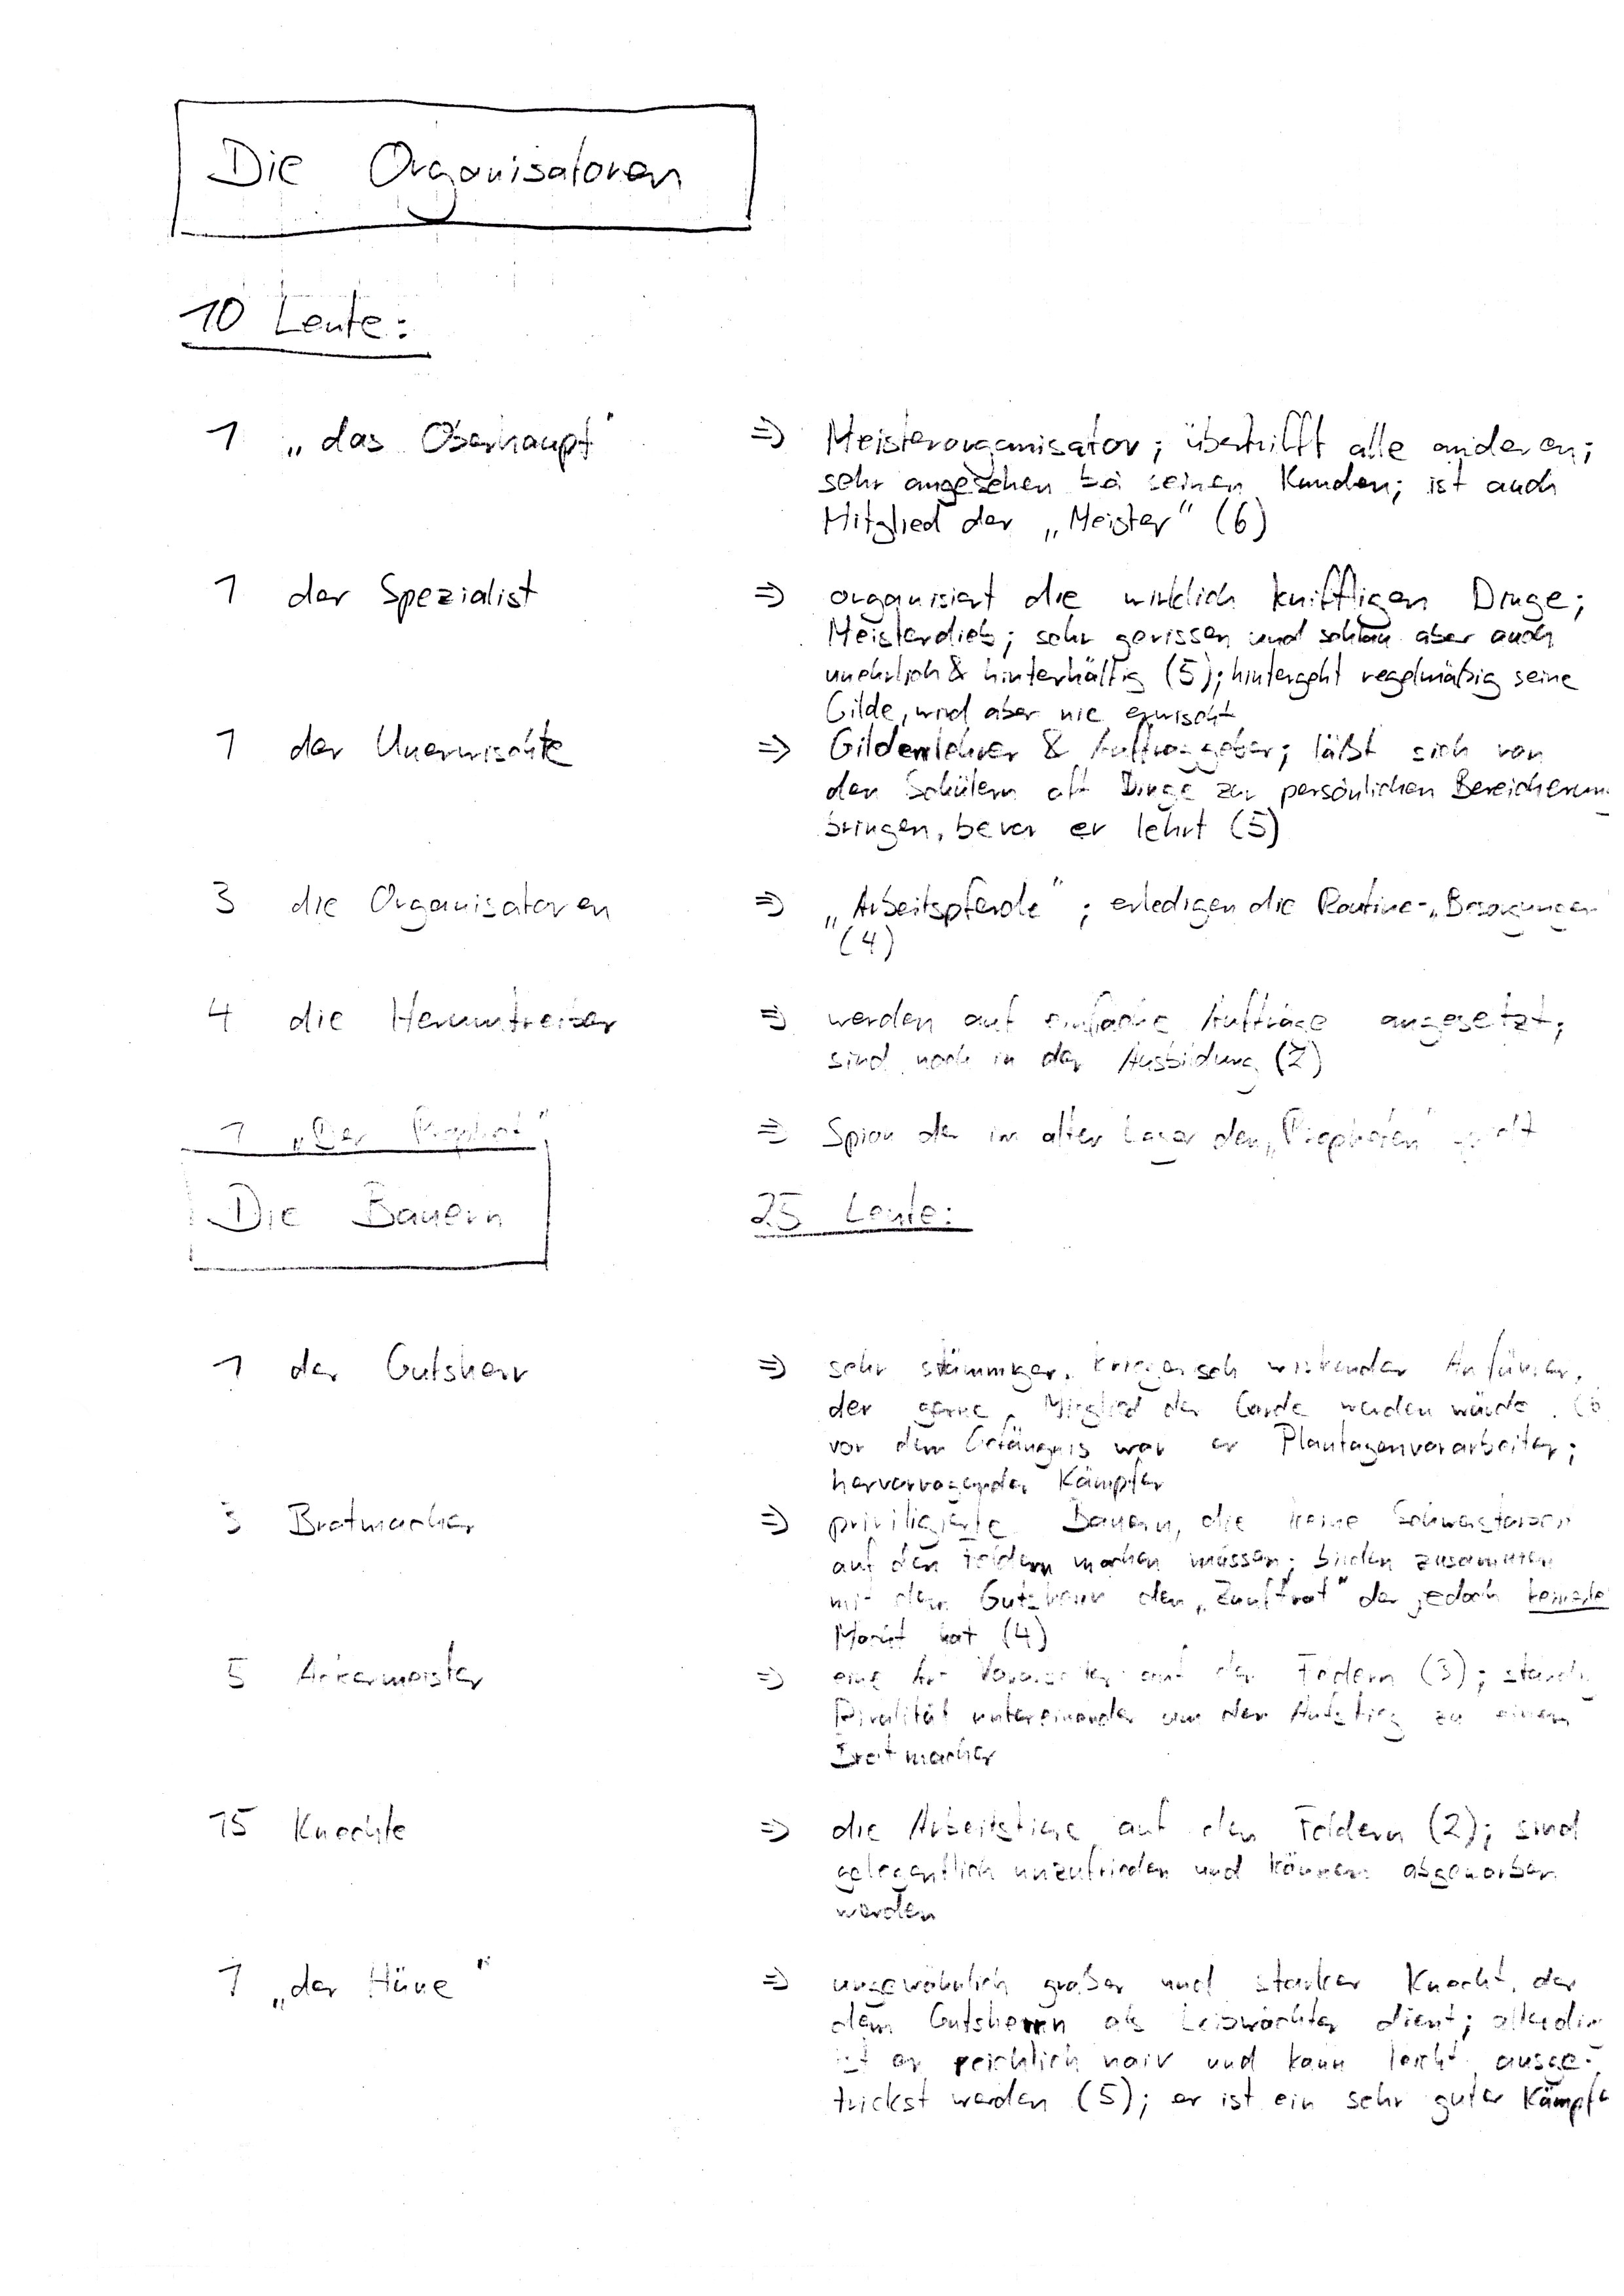 Die Organisatoren
10 Leute:
1 „das Oberhaupt" => Meisterorganisator; übertrifft alle anderen;
sehr angesehen bei seinen Kunden; ist auch
Mitglied der „Meister" (6)
1 der Spezialist => organisiert die wirklich kniffligen Dinge;
Meisterdieb; sehr gerissen und schlau aber auch
unehrlich & hinterhältig (5); hintergeht regelmäßig seine
Gilde, wird aber nie erwischt
1 der Unerwischte => Gildenlehrer & Auftraggeber; läßt sich von
den Schülern oft Dinge zur persönlichen Bereicherung
bringen, bevor er lehrt (5)
3 die Organisatoren => „Arbeitspferde"; erledigen die Routine-„Besorgungen
(4)
4 die Herumtreiber => werden auf einfache Aufträge angesetzt;
sind noch in der Ausbildung (2)
1 „Der Prophet" => Spion der im alten Lager den „Propheten" spielt
Die Bauern 25 Leute:
1 der Gutsherr => sehr stämmiger, kriegerisch wirkender Anführer,
der gerne Mitglied der Garde werden würde
vor dem Gefängnis war er Plantagenvorarbeiter;
hervorragender Kämpfer
3 Brotmacher => priviligierte Bauern, die keine
auf den Feldern machen müssen; bilden zusammen
mit dem Gutsherrn den „Zunftrat" der jedoch
Macht hat (4)
5 Ackermeister => eine Art Vorarbeiter auf den Feldern (3);
Rivalität untereinander um den Aufstieg zu einem
Brotmacher
15 Knechte => die Arbeitstiere auf den Feldern (2); sind
gelegentlich unzufrieden und können abgeworben
werden
1 „der Hüne" => ungewöhnlich großer und starker Knecht, der
dem Gutsherrn als Leibwächter dient; allerdin
ist er reichlich naiv und kann leicht ausge-
trickst werden (5); er ist ein sehr guter Kämpfe